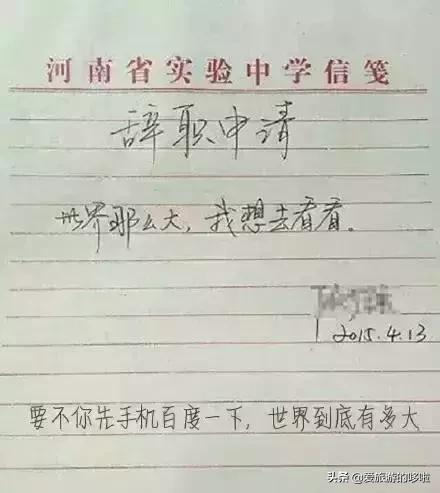 河南省实验中学信笺
辞职申请
世界那么大，我想去看看。
2015.4.13
要不你先手机百度一下，世界到底有多大
头条 @爱旅游的哆啦